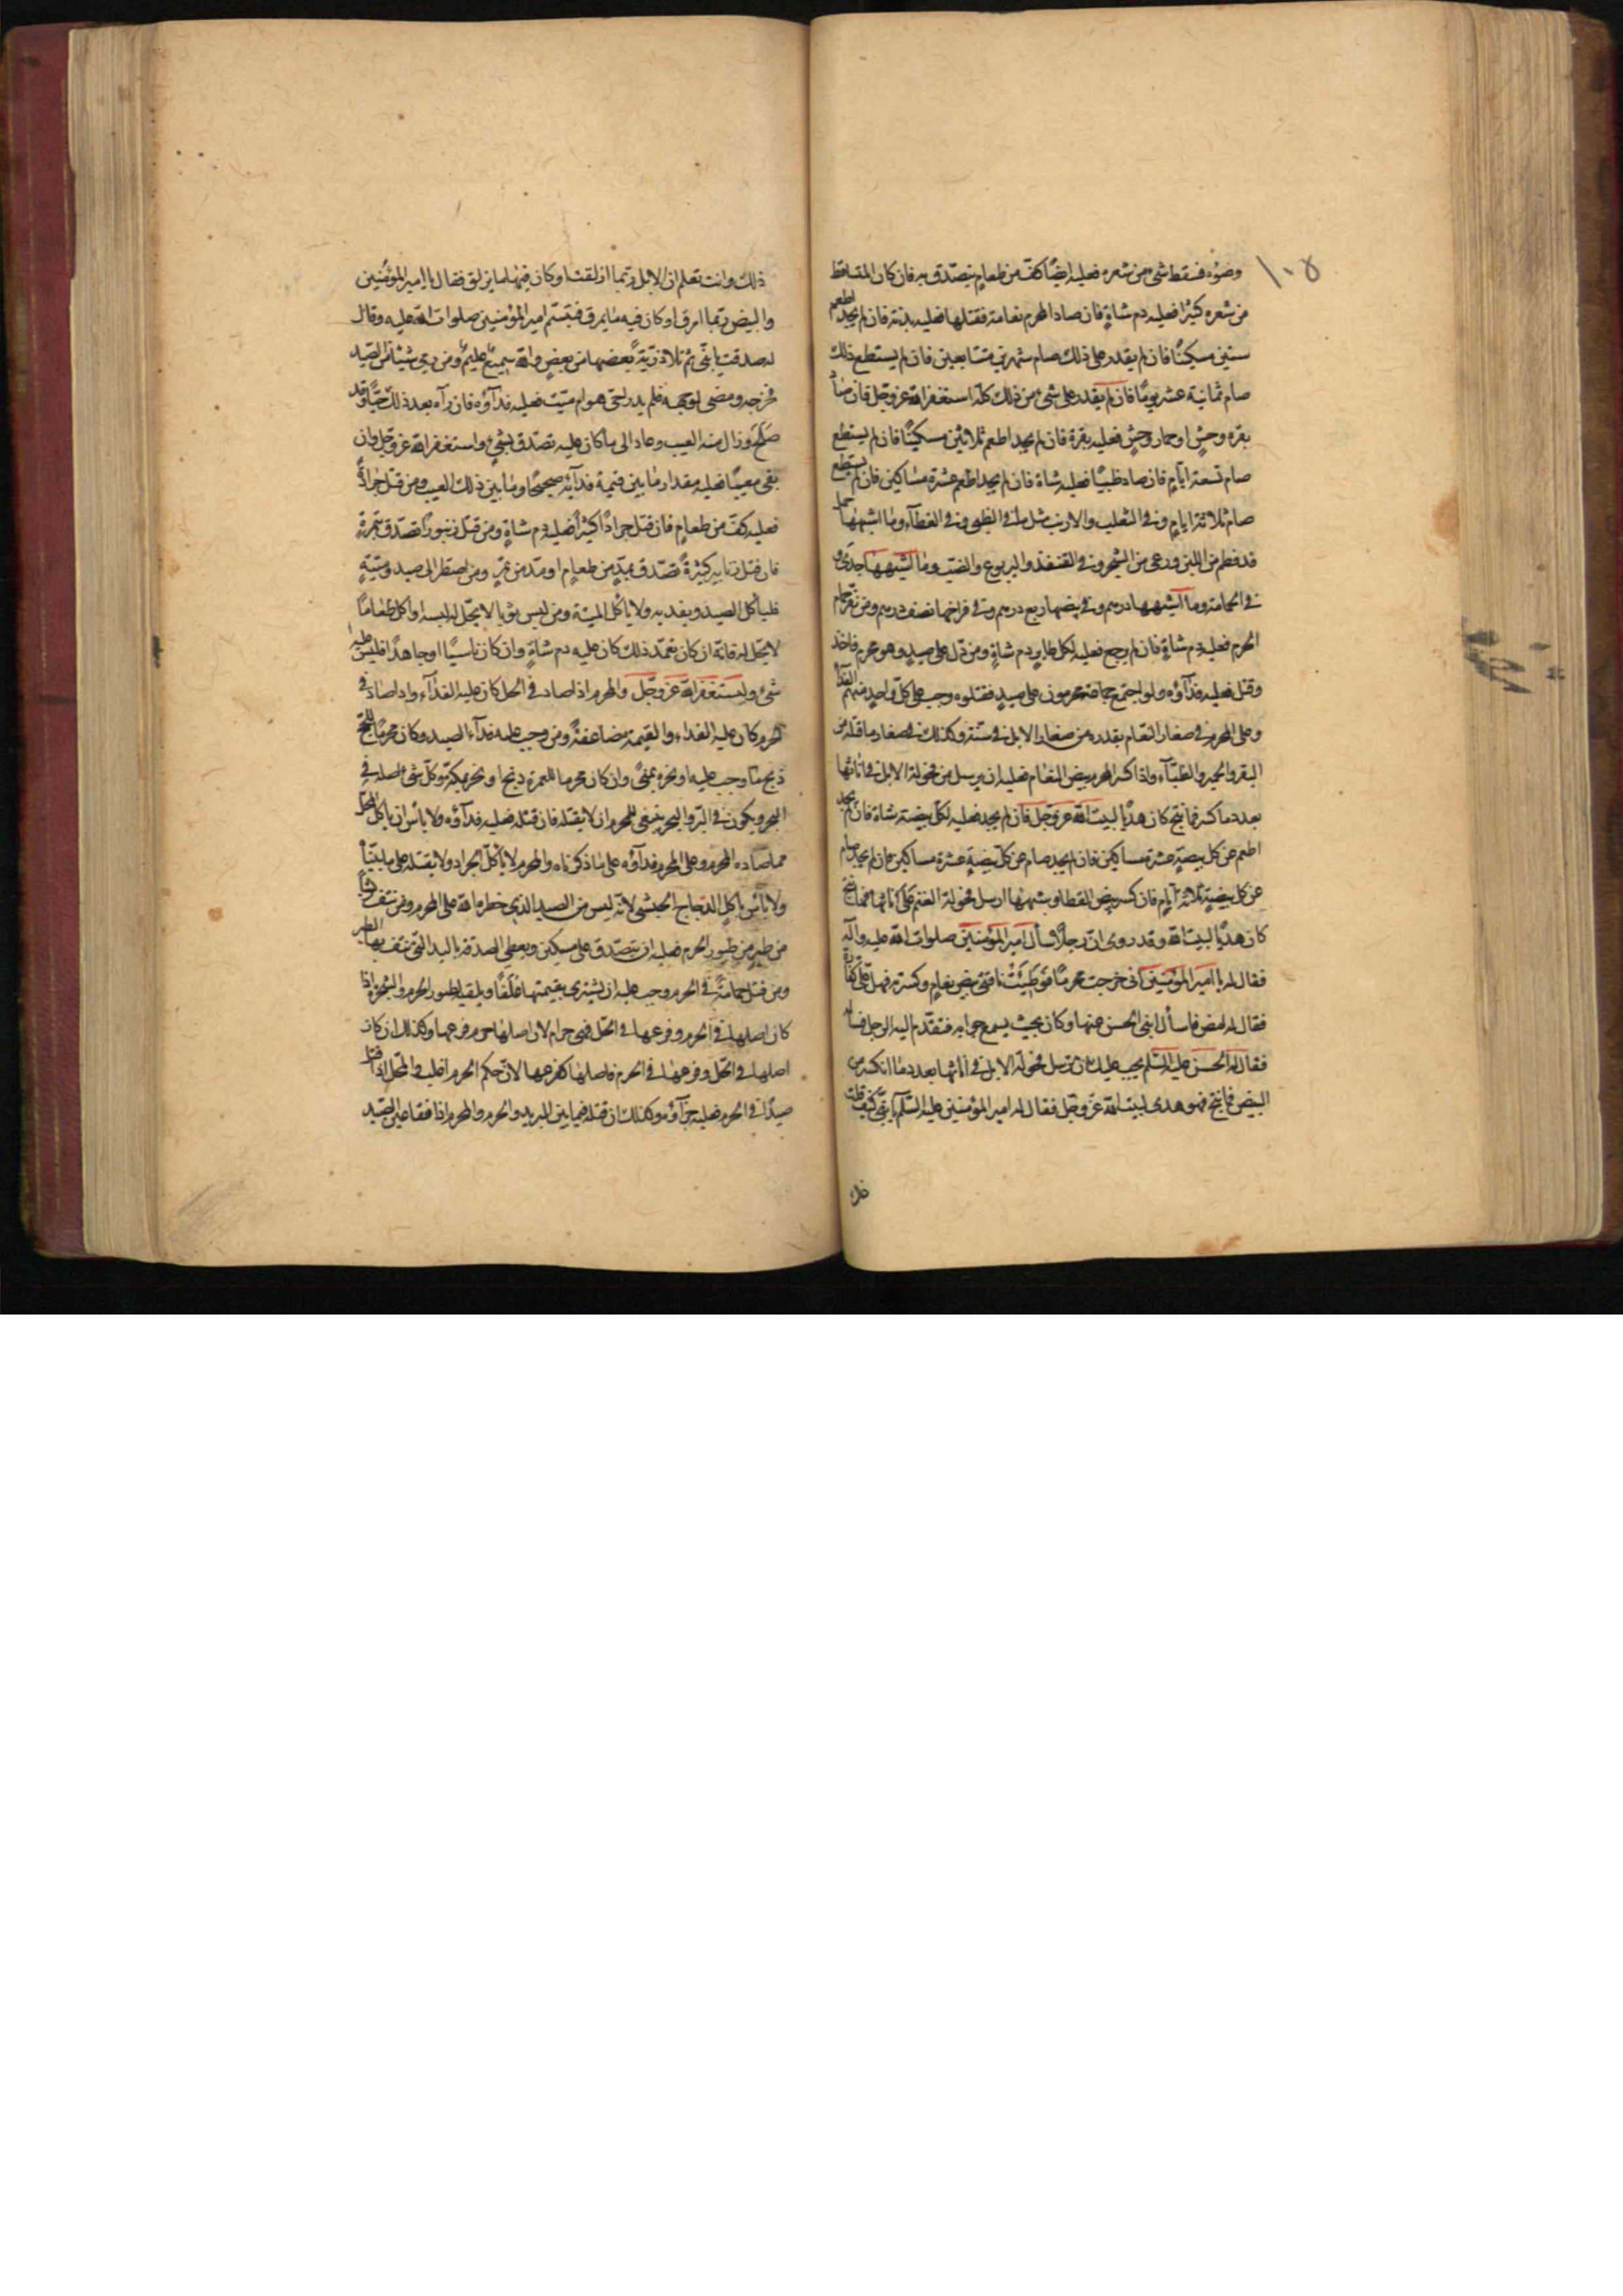 ١٠٥
وضوءه فسقط شيء من شعره فعليه ايضًا كف من طعام يتصدق به فان كان المتساقط
من شعره كثيرًا فعليه دم شاةٍ فان صاد المحرم نعامة فقتلها فعليه بدنة فان لم يجد اطعم
ستين مسكينًا فان لم يقدر على ذلك صام شهرين متتابعين فان لم يستطع ذلك
صام ثمانية عشر يومًا فان لم يقدر على شيء من ذلك كله استغفر الله عز وجل فان صاد
بقرة وحشٍ او حمار وحشٍ فعليه بقرة فان لم يجد اطعم ثلاثين مسكينًا فان لم يستطع
صام تسعة ايام فان صاد ظبيًا فعليه شاة فان لم يجد اطعم عشرة مساكين فان لم يستطع
صام ثلاثة ايام وفي الثعلب والارنب مثل ما في الظبي وفي القطاة وما اشبهها حمل
قد فطم من اللبن ورعى من الشجر وفي القنفذ واليربوع والضب وما اشبهها جدي و
في الحمامة وما اشبهها درهم وفي بيضها ربع درهم وفي فراخها نصف درهم ومن نفر حمام
الحرم فعليه دم شاةٍ فان لم يرجع فعليه لكل طاير دم شاةٍ ومن دل على صيدٍ وهو محرم فاخذ
وقتل فعليه فدآؤه ولو اجتمع جماعة محرمون على صيدٍ فقتلوه وجب على كل واحدٍ منهم الفدآء
وعلى المحرم في صغار النعام بقدره من صغار الابل في سنة وكذلك في صغار ما قتله من
البقر والحمير والظبآء واذا كسر المحرم بيض النعام فعليه ان يرسل من فحولة الابل في اناثها
بعدد ما كسر فما نتج كان هديًا لبيت الله عز وجل فان لم يجد فعليه لكل بيضة شاة فان لم يجد
اطعم عن كل بيضةٍ عشرة مساكين فان لم يجد صام عن كل بيضةٍ عشرة مساكين فان لم يجد صام
عن كل بيضةٍ ثلاثة ايام فان كسر بيض القطا وشبهها ارسل فحولة الغنم على اناثها فما نتج
كان هديًا لبيت الله وقد روى ان رجلًا سأل امير المؤمنين صلوات الله عليه وآله
فقال له يا امير المؤمنين اني خرجت محرمًا فوطئت ناقتي بيض نعام وكسرته فهل علي كفارة
فقال له امض فاسأل ابني الحسن عنها وكان بحيث يسمع جوابه فتقدم اليه الرجل فسأله
فقال له الحسن عليه السلم يجب عليك ان ترسل فحولة الابل في اناثها بعدد ما انكسر من
البيض فما نتج فهو هدي لبيت الله عز وجل فقال له امير المؤمنين عليه السلم يا بني كيف قلت
ذلك
ذلك وانت تعلم ان الابل ربما ازلقت او كان فيها ما يزلق فقال يا امير المؤمنين
والبيض ربما امرق او كان فيه ما يمرق فتبسم امير المؤمنين صلوات الله عليه وقال
له صدقت يا بني ثم تلا ذرية بعضها من بعضٍ والله سميع عليم ومن رمى شيئا من الصيد
فجرحه ومضى لوجهه فلم يدر احي هو ام ميت فعليه فدآؤه فان رآه بعد ذلك حيًا وقد
صلح وزال منه العيب وعاد الى ما كان عليه تصدق بشيء واستغفر الله عز وجل وان
بقي معيبًا فعليه مقدار ما بين قيمة فدآئه صحيحًا وما بين ذلك العيب ومن قتل جرادةً
فعليه كف من طعامٍ فان قتل جرادًا كثيرًا فعليه دم شاةٍ ومن قتل زنبورًا تصدق بتمرةٍ
فان قتل زنابير كثيرةً تصدق بمدٍ من طعامٍ او مد من تمرٍ ومن اضطر الى صيد وميتةٍ
فليأكل الصيد ويفديه ولا يأكل الميتة ومن لبس ثوبا لا يحل له لبسه او اكل طعامًا
لا يحل له فانه ان كان تعمد ذلك كان عليه دم شاةٍ وان كان ناسيًا او جاهلًا فليس عليه
شيء وليستغفر الله عز وجل والمحرم اذا صاد في الحل كان عليه الفدآء واذا صاد في
الحرم كان عليه الفداء والقيمة مضاعفةً ومن وجب عليه فدآء الصيد وكان محرمًا للحج
ذبح ما وجب عليه او نحره بمنى وان كان محرما للعمرة ذبح او نحر بمكة وكل شيء اصله في
البحر ويكون في البر والبحر ينبغي للمحرم ان لا يقتله فان قتله فعليه فدآؤه ولا باس ان ياكل المحل
مما صاده المحرم وعلى المحرم فدآؤه على ما ذكرناه والمحرم لا يأكل الجراد ولا يقتله على ما بيناه
ولا باس باكل الدجاج الحبشي لانه ليس من الصيد الذي حظره الله على المحرم ومن نتف ريشًا
من طيرٍ من طيور الحرم فعليه ان يتصدق على مسكين ويعطي الصدقة باليد التي نتف بها الطير
ومن قتل حمامةً في الحرم وجب عليه ان يشتري بقيمتها علفًا ويلقيه لطيور الحرم والشجرة اذا
كان اصلها في الحرم وفرعها في الحل فهي حرام لان اصلها حرم فرعها وكذلك ان كان
اصلها في الحل وفرعها في الحرم فاصلها كفرعها لان حكم الحرم اغلب والمحل اذا قتل
صيدًا في الحرم فعليه جزآؤه وكذلك ان قتله فيما بين البريد والحرم والمحرم اذا فقأ عين الصيد